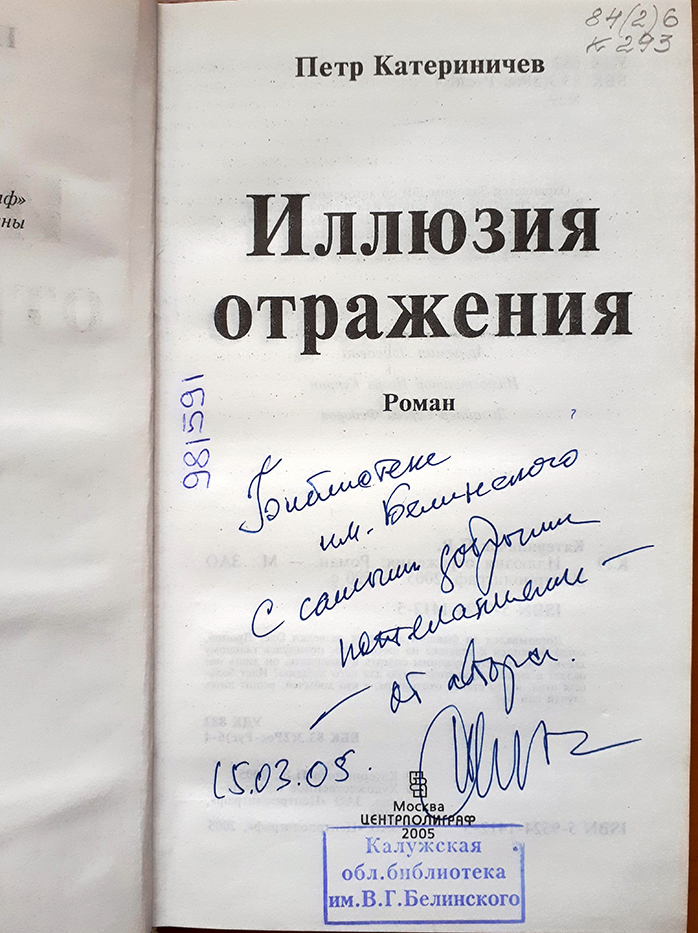 84(2)6
К 293
Петр Катериничев
Иллюзия
отражения
Роман
981591
Библиотеке
им. Белинского
С самыми добрыми
пожеланиями —
— от автора.
15.03.05.
Москва
ЦЕНТРПОЛИГРАФ
2005
Калужская
обл.библиотека
им.В.Г.Белинского
аф»
ны